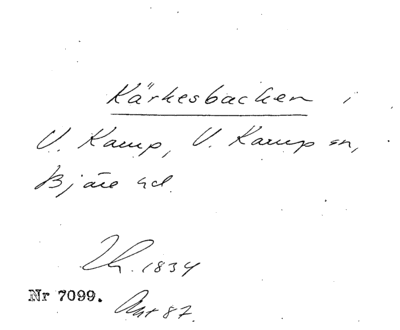 Kärkesbacken i
V. Karup, V. Karup sn,
Bjäre hd.
Lh. 1834
Nr 7099. Akt 87.